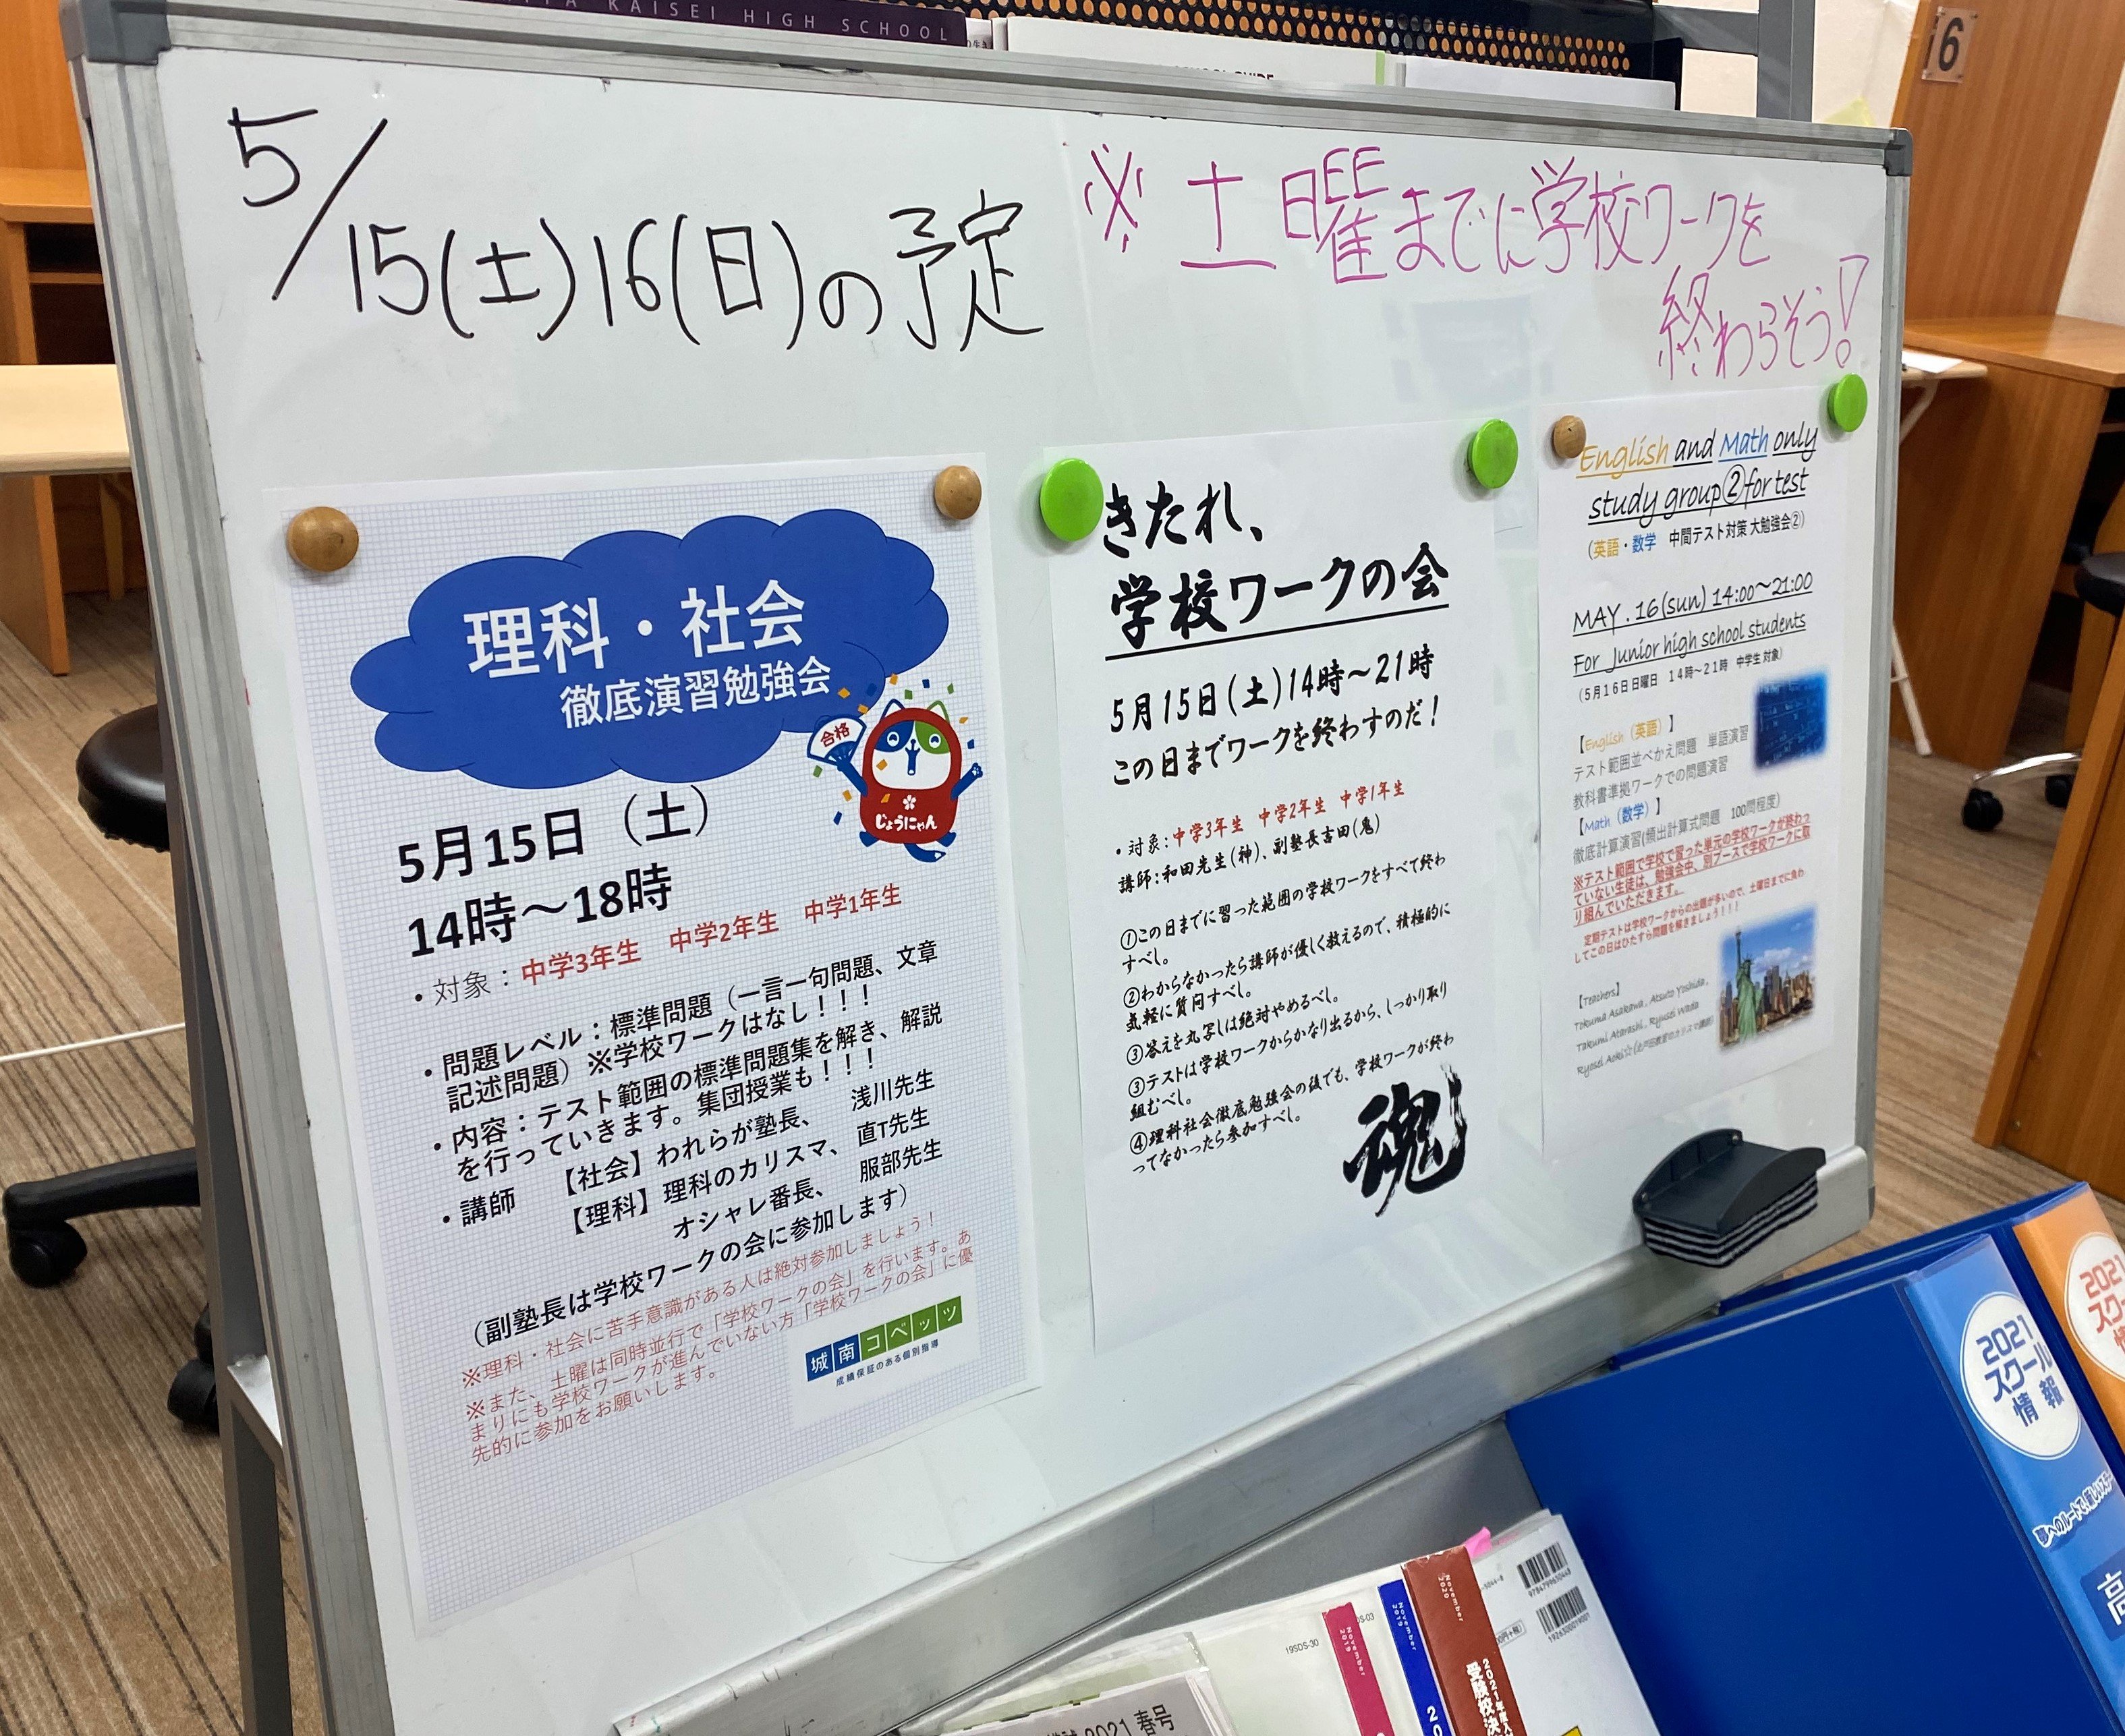 KAISEI HIGH SCHOOL
6
5/15(土)16(日)の予定
※土曜までに学校ワークを
終わらそう!
理科・社会
徹底演習勉強会
合格
じょうにゃん
5月15日（土）
14時～18時
・対象：中学3年生　中学2年生　中学1年生
・問題レベル：標準問題（一言一句問題、文章
記述問題）※学校ワークはなし！！！
・内容：テスト範囲の標準問題集を解き、解説
を行っていきます。集団授業も！！！
・講師　【社会】われらが塾長、　浅川先生
【理科】理科のカリスマ、　直T先生
オシャレ番長、　服部先生
（副塾長は学校ワークの会に参加します）
※理科・社会に苦手意識がある人は絶対参加しましょう！
※また、土曜は同時並行で「学校ワークの会」を行います。あ
まりにも学校ワークが進んでいない方「学校ワークの会」に優
先的に参加をお願いします。
城南コベッツ
成績保証のある個別指導
きたれ、
学校ワークの会
5月15日(土)14時～21時
この日までワークを終わすのだ！
・対象：中学3年生　中学2年生　中学1年生
講師：和田先生(神)、副塾長吉田(鬼)
①この日までに習った範囲の学校ワークをすべて終わ
すべし。
②わからなかったら講師が優しく教えるので、積極的に
気軽に質問すべし。
③答えを丸写しは絶対やめるべし。
③テストは学校ワークからかなり出るから、しっかり取り
組むべし。
④理科社会徹底勉強会の後でも、学校ワークが終わ
ってなかったら参加すべし。
魂
English and Math only
study group②for test
（英語・数学　中間テスト対策 大勉強会②）
MAY . 16(sun) 14:00～21:00
For Junior high school students
（5月16日日曜日　14時～21時　中学生 対象）
【English（英語）】
テスト範囲並べかえ問題　単語演習
教科書準拠ワークでの問題演習
【Math（数学）】
徹底計算演習(頻出計算式問題　100問程度)
※テスト範囲で学校で習った単元の学校ワークが終わっ
ていない生徒は、勉強会中、別ブースで学校ワークに取
り組んでいただきます。
定期テストは学校ワークからの出題が多いので、土曜日までに終わら
してこの日はひたすら問題を解きましょう！！！
【Teachers】
Tokuma Asakawa , Atsuto Yoshida ,
Takumi Atarashi , Ryusei Wada
Ryosei Aoki☆
2021
スクール
情報
2021
19SDS-30
November
2019
November
2019
November
2020
2021 春号